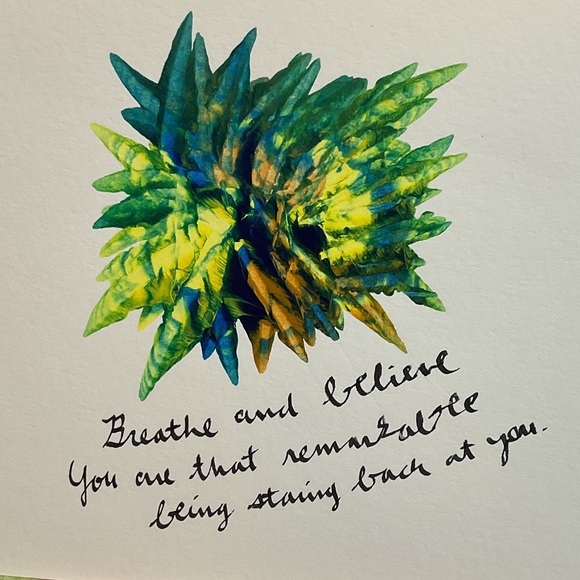 Breathe and believe
You are that remarkable
being staring back at you.